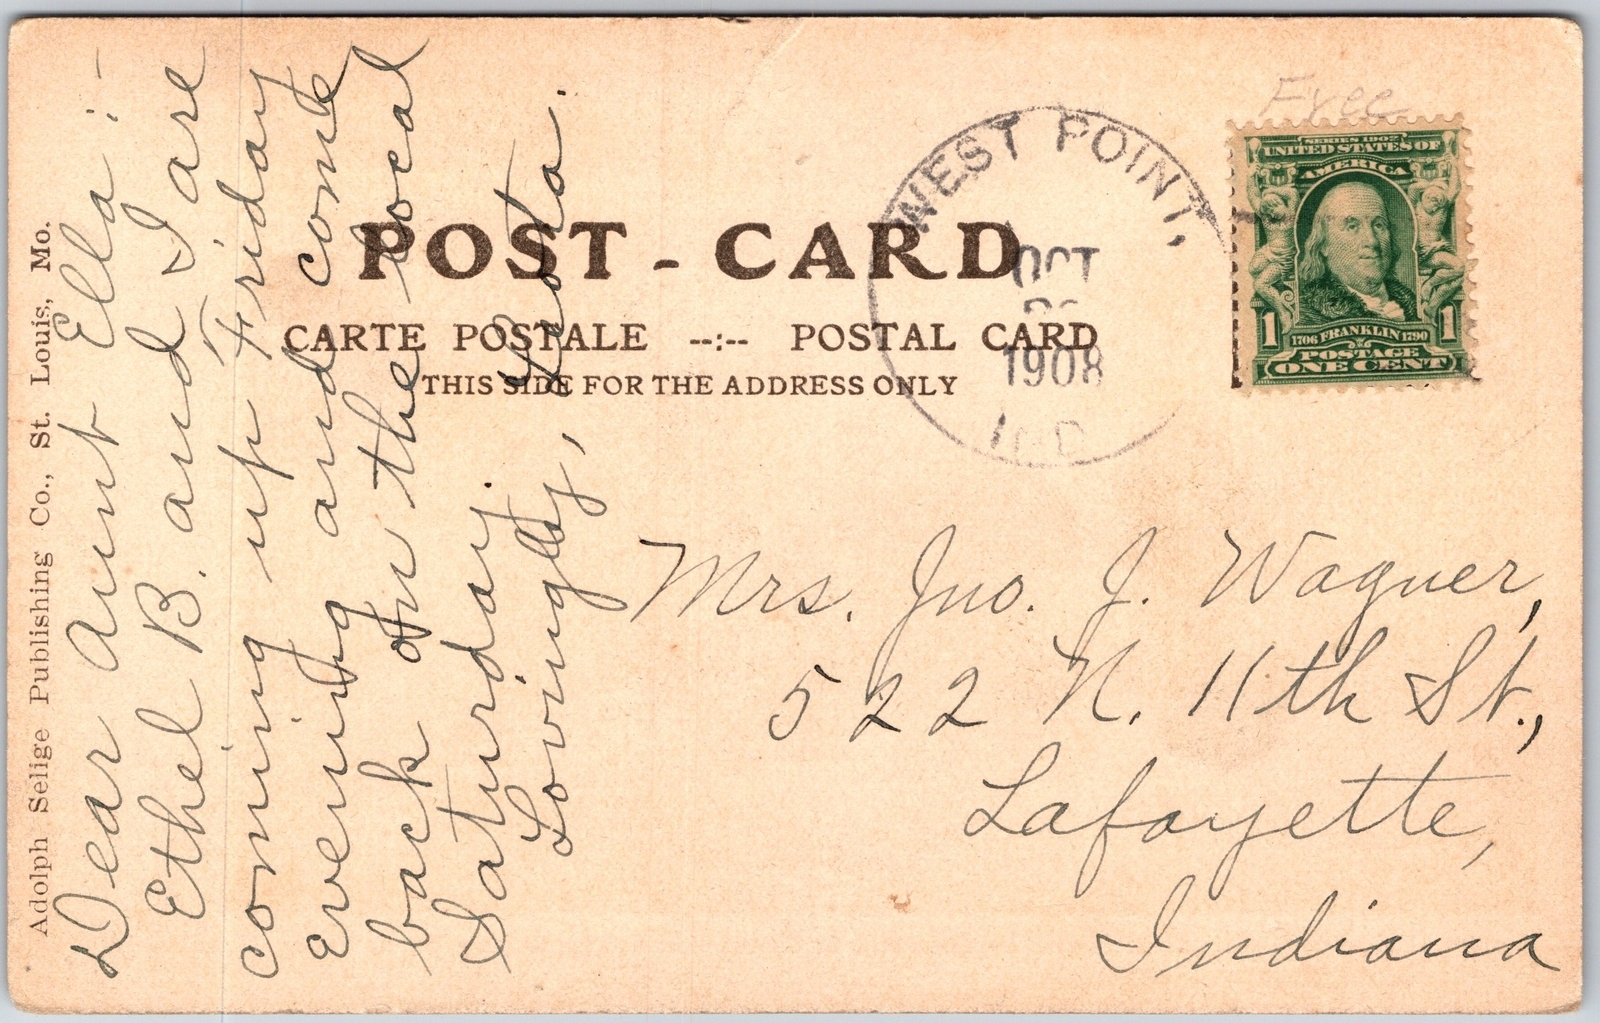 Adolph Selige Publishing Co., St. Louis, Mo.
Dear Aunt Ella :-
Ethel B. and I are
coming up Friday
evening and come
back on the local
Saturday.
Lovingly, Rota.
POST - CARD
CARTE POSTALE --:-- POSTAL CARD
THIS SIDE FOR THE ADDRESS ONLY
WEST POINT,
OCT
1908
IND
Free
SERIES 1902
UNITED STATES OF
AMERICA
1 1706 FRANKLIN 1790 1
POSTAGE
ONE CENT
Mrs. Jno. J. Wagner,
522 N. 11th St.,
Lafayette,
Indiana